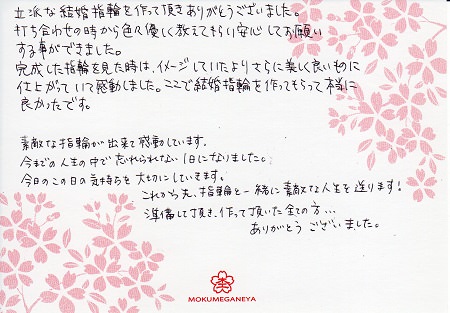 立派な結婚指輪を作って頂きありがとうございました。
打ち合わせの時から色々優しく教えてもらい安心してお願い
する事ができました。
完成した指輪を見た時は、イメージしていたよりさらに美しく良いものに
仕上がっていて感動しました。ここで結婚指輪を作ってもらって本当に
良かったです。
素敵な指輪が出来て感動しています。
今までの人生の中で忘れられない1日になりました。
今日のこの日の気持ちを大切にしていきます。
これから先、指輪と一緒に素敵な人生を送ります!
準備して頂き、作って頂いた全ての方...
ありがとうございました。
MOKUMEGANEYA